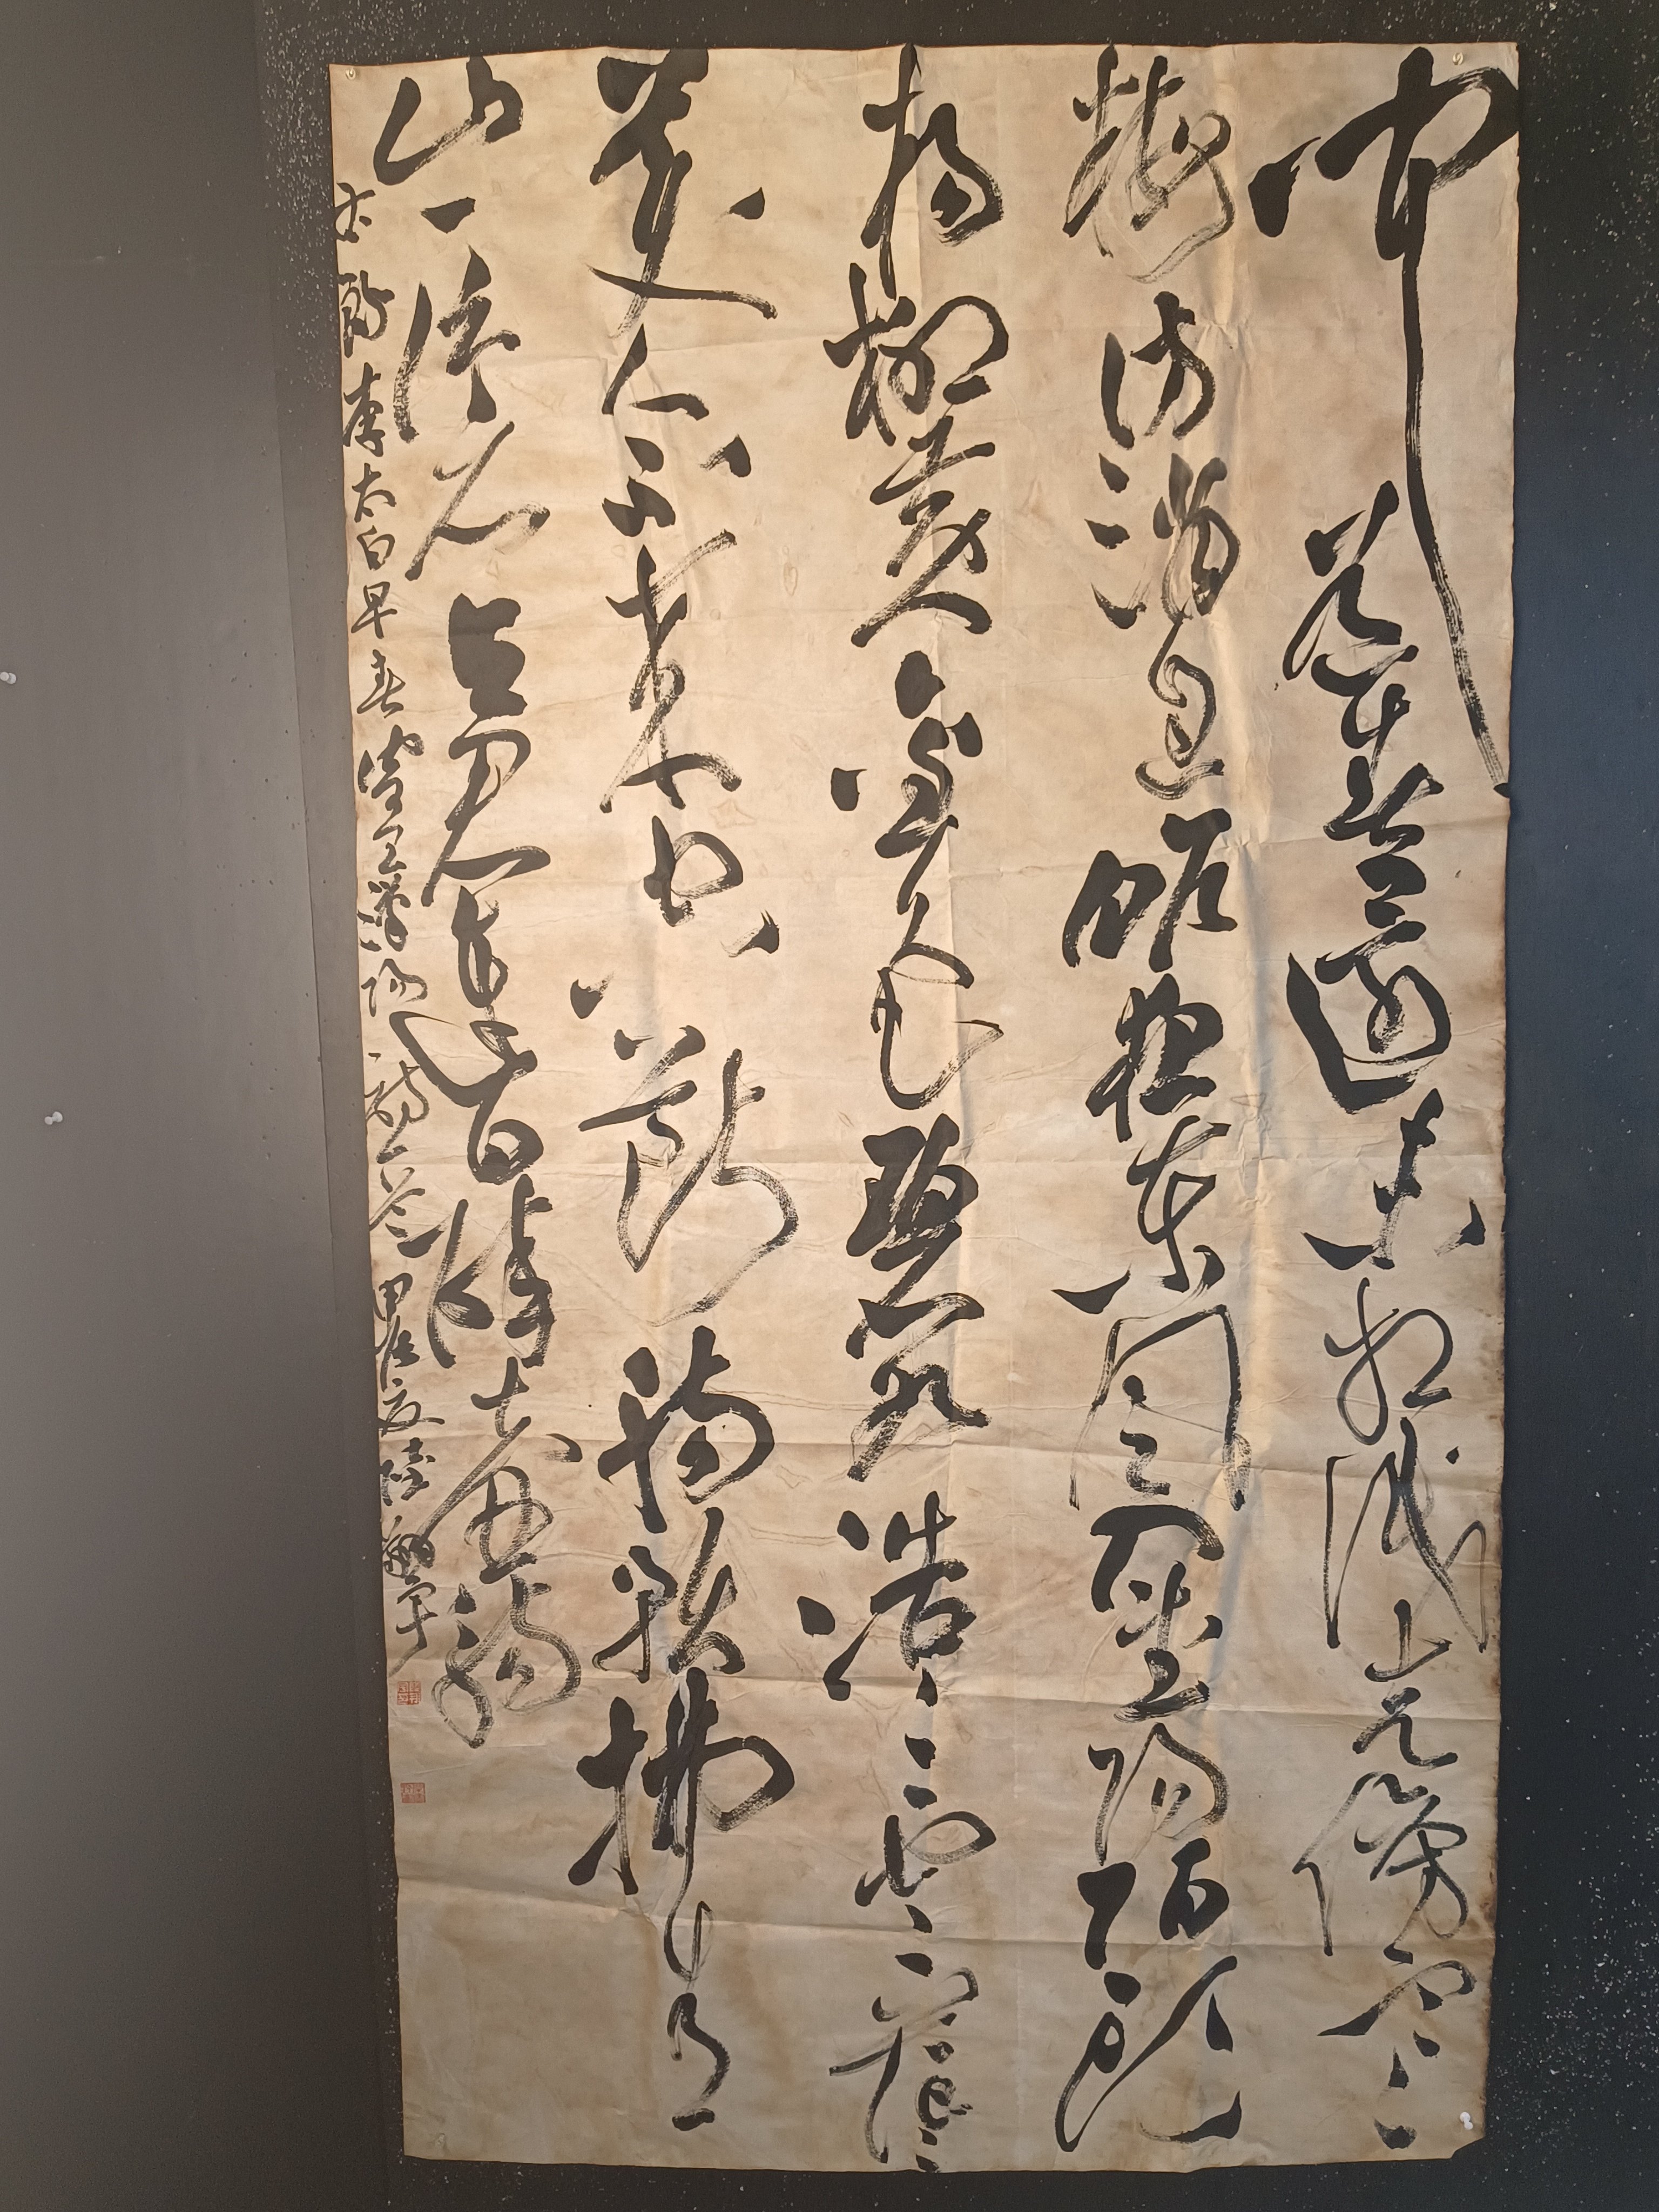 聞道春還未相識走傍寒
梅訪消息昨夜東風入武陽陌頭
楊柳黃金色碧水浩〻雲茫〻
美人不來空斷腸預拂青
山一片石與君連日醉壺觴
右錄李太白早春寄王漢陽詩一首甲辰夏陸